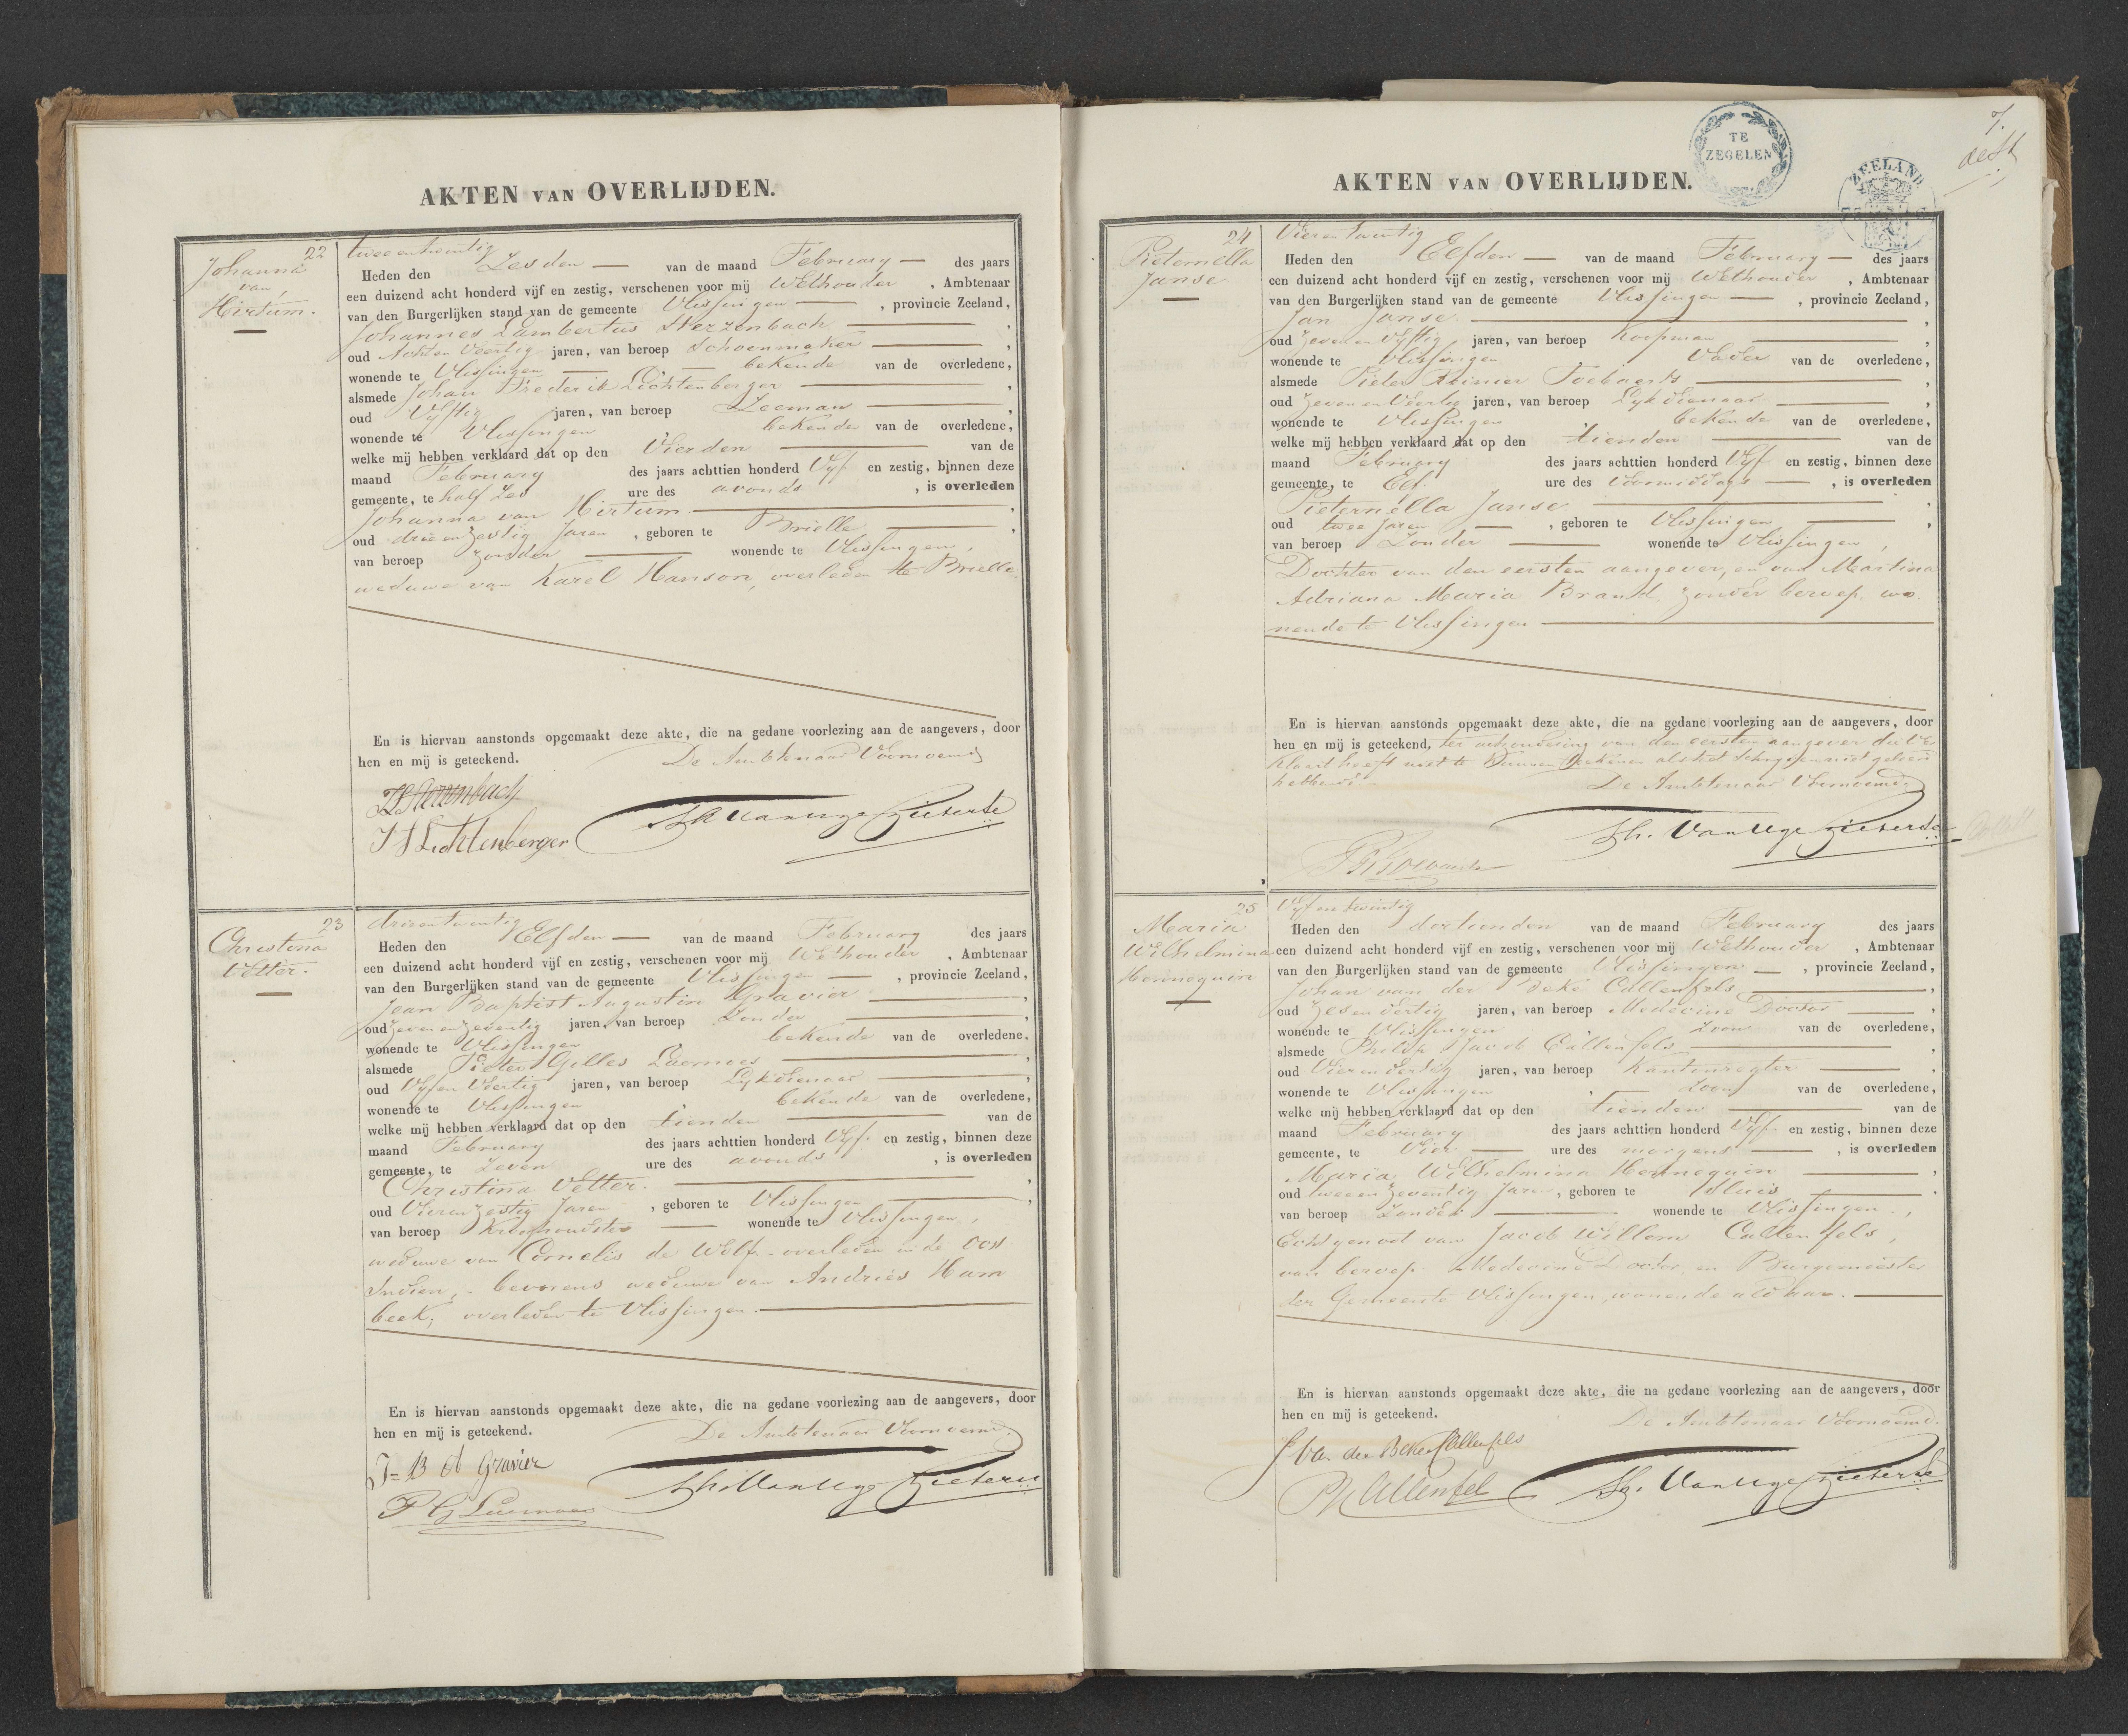 AKTEN VAN OVERLIJDEN.
22
Johanna
van
Hirtum.
twee en twintig
Heden den Zesden van de maand February des jaars
een duizend acht honderd vijf en zestig, verschenen voor mij Wethouder, Ambtenaar
van den Burgerlijken stand van de gemeente Vlissingen, provincie Zeeland,
Johannes Lambertus Sterzenbach,
oud Acht en Veertig jaren, van beroep Schoenmaker,
wonende te Vlissingen, bekende van de overledene,
alsmede Johan Frederik Lichtenberger,
oud Vyftig jaren, van beroep Zeeman,
wonende te Vlissingen, bekende van de overledene,
welke mij hebben verklaard dat op den Vierden van de
maand February des jaars achttien honderd Vyf en zestig, binnen deze
gemeente, te half Zes ure des avonds, is overleden
Johanna van Hirtum,
oud drie en Zestig Jaren, geboren te Brielle,
van beroep Zonder wonende te Vlissingen,
weduwe van Karel Hanson, overleden te Brielle.
En is hiervan aanstonds opgemaakt deze akte, die na gedane voorlezing aan de aangevers, door
hen en mij is geteekend.
De Ambtenaar Voornoemd
Sterzenbach
J F Lichtenberger
23
Christina
Vetter.
drie en twintig
Heden den Elfden van de maand February des jaars
een duizend acht honderd vijf en zestig, verschenen voor mij Wethouder, Ambtenaar
van den Burgerlijken stand van de gemeente Vlissingen, provincie Zeeland,
Jean Baptist Augustin Gravier,
oud Zeven en Zeventig jaren, van beroep Zonder,
wonende te Vlissingen bekende van de overledene,
alsmede Pieter Gilles Laernoes,
oud Vyf en Veertig jaren, van beroep Lykdienaar,
wonende te Vlissingen, bekende van de overledene,
welke mij hebben verklaard dat op den tienden van de
maand February des jaars achttien honderd Vyf en zestig, binnen deze
gemeente, te Zeven ure des avonds, is overleden
Christina Vetter.,
oud Vier en Zestig Jaren, geboren te Vlissingen,
van beroep Kroeghoudster wonende te Vlissingen,
weduwe van Cornelis de Wolf, - overleden in de Oost
Indien, - bevorens weduwe van Andries Ham
beek, overleden te Vlissingen.
En is hiervan aanstonds opgemaakt deze akte, die na gedane voorlezing aan de aangevers, door
hen en mij is geteekend.
De Ambtenaar Voornoemd.
J = B A Gravier
P G Laernoes
7.
TE
ZEGELEN
ZEELAND
AKTEN VAN OVERLIJDEN.
24
Pieternella
Janse
Vier en twintig
Heden den Elfden van de maand February des jaars
een duizend acht honderd vijf en zestig, verschenen voor mij Wethouder, Ambtenaar
van den Burgerlijken stand van de gemeente Vlissingen, provincie Zeeland,
Jan Janse,
oud Zeven en Vyftig jaren, van beroep Koopman,
wonende te Vlissingen, Vader van de overledene,
alsmede Pieter Reinier Toebaerts,
oud Zeven en Veertig jaren, van beroep Lykdienaar,
wonende te Vlissingen, bekende van de overledene,
welke mij hebben verklaard dat op den tienden van de
maand February des jaars achttien honderd Vyf en zestig, binnen deze
gemeente, te Elf ure des Voormiddags, is overleden
Pieternella Janse,
oud twee Jaren, geboren te Vlissingen,
van beroep Zonder wonende te Vlissingen,
Dochter van den eersten aangever, en van Martina
Adriana Maria Brand, zonder beroep, wo-
nende te Vlissingen
En is hiervan aanstonds opgemaakt deze akte, die na gedane voorlezing aan de aangevers, door
hen en mij is geteekend, ter uitzondering van den eersten aangever die Ver
klaard heeft niet te Kunnen teekenen als het schryven niet geleerd
hebbende.
De Ambtenaar Voornoemd.
25
Maria
Wilhelmina
Hennequin
Vyf en twintig
Heden den dertienden van de maand February des jaars
een duizend acht honderd vijf en zestig, verschenen voor mij Wethouder, Ambtenaar
van den Burgerlijken stand van de gemeente Vlissingen, provincie Zeeland,
Johan van der Beke Callenfels,
oud Zes en dertig jaren, van beroep Medecine Doctor,
wonende te Vlissingen, Zoon van de overledene,
alsmede Philip Jacob Callenfels,
oud Vier en dertig jaren, van beroep Kantonregter,
wonende te Vlissingen, Zoon van de overledene,
welke mij hebben verklaard dat op den tienden van de
maand February des jaars achttien honderd Vyf en zestig, binnen deze
gemeente, te Vier ure des morgens, is overleden
Maria Wilhelmina Hennequin,
oud twee en Zeventig Jaren, geboren te Sluis,
van beroep Zonder wonende te Vlissingen,
Echtgenoot van Jacob Willem Callenfels,
van beroep Medecine Doctor, en Burgemeester
der Gemeente Vlissingen, wonende aldaar.
En is hiervan aanstonds opgemaakt deze akte, die na gedane voorlezing aan de aangevers, door
hen en mij is geteekend.
De Ambtenaar Voornoemd.
J Va. der Beke Callenfels